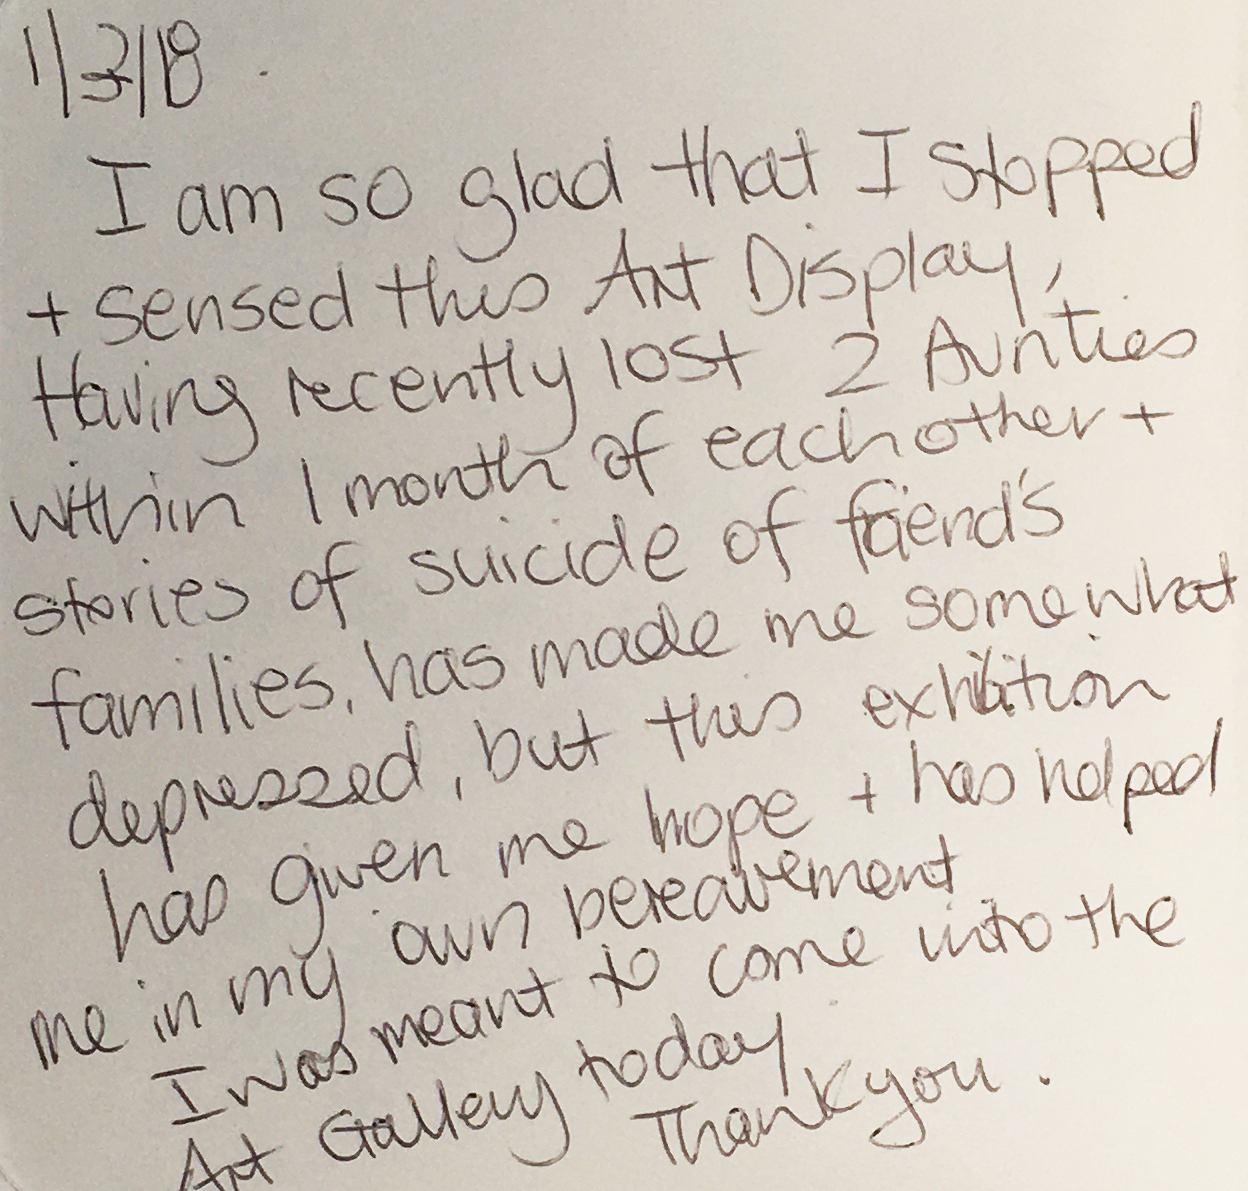 1/3/18
I am so glad that I stopped
+ sensed this Art Display,
Having recently lost 2 Aunties
within 1 month of each other +
stories of suicide of friend's
families, has made me somewhat
depressed, but this exhibition
has given me hope + has helped
me in my own bereavement
I was meant to come into the
Art Gallery today
Thank you.